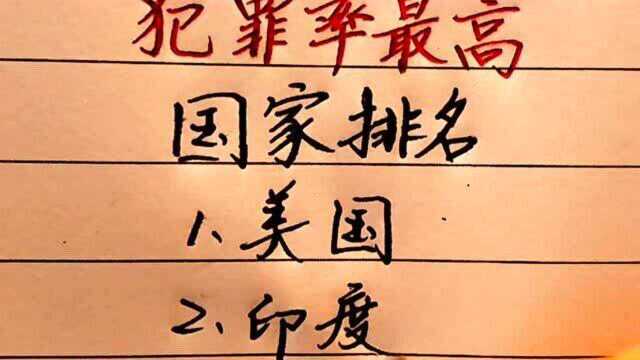 犯罪率最高
国家排名
1、美国
2、印度